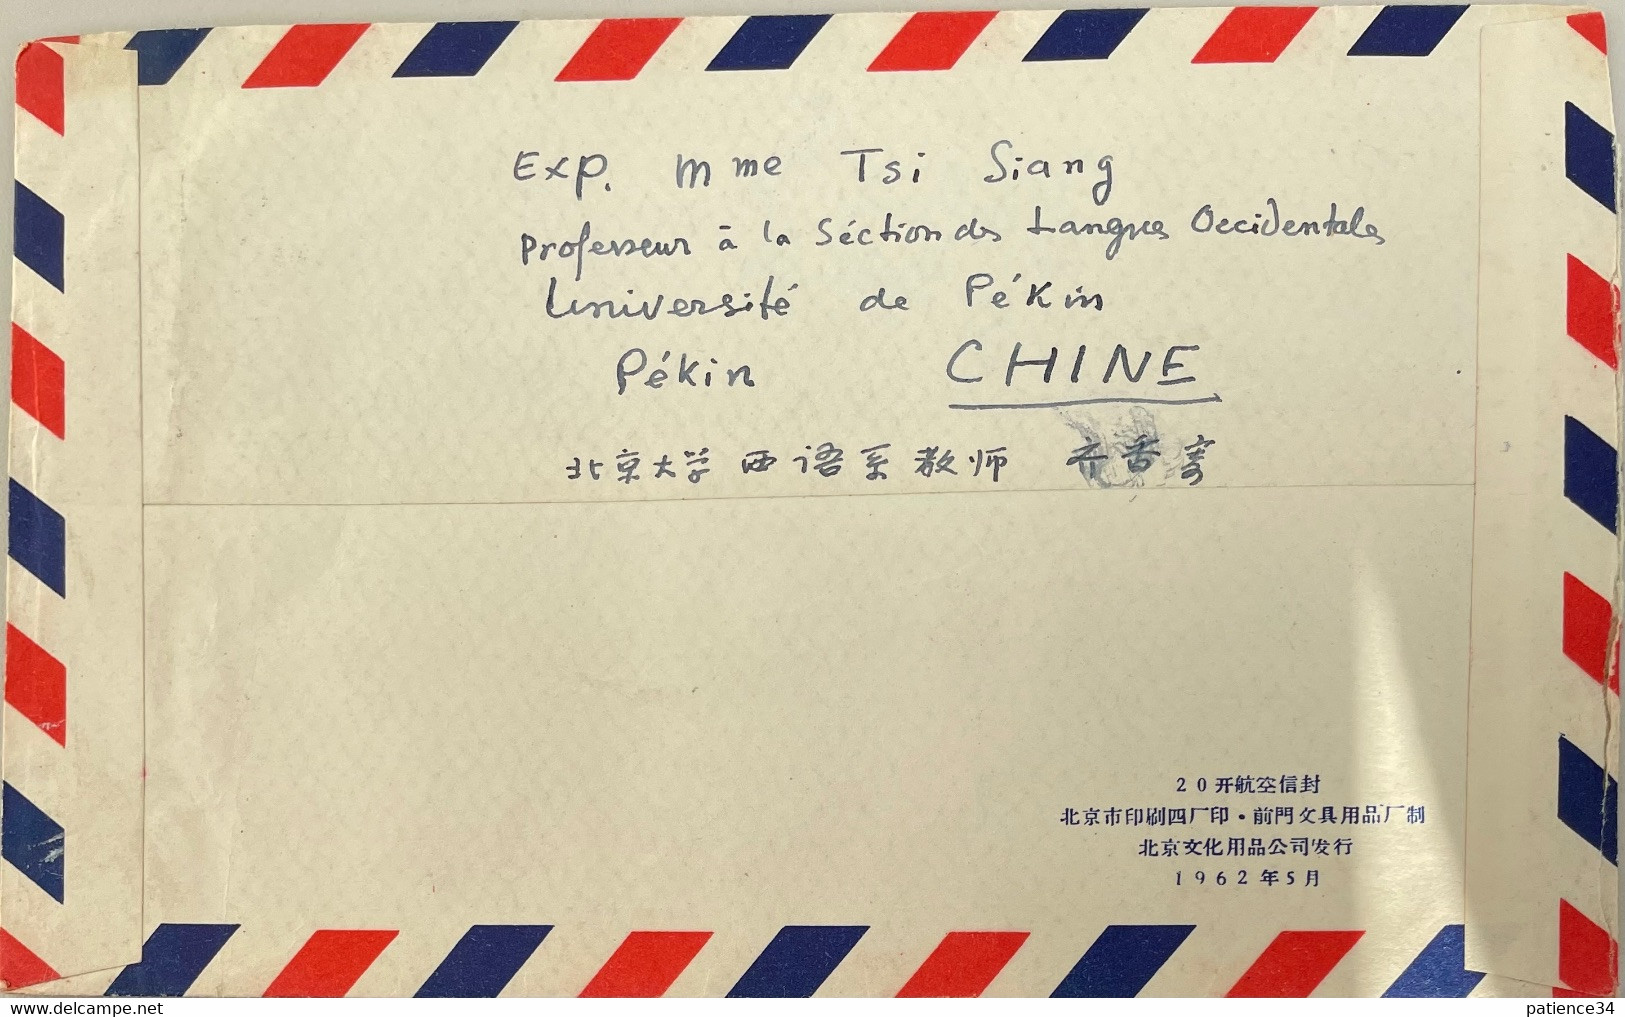 Exp. Mme Tsi Siang
Professeur à la Séction des Langues Occidentales
Université de Pékin
Pékin CHINE
北京大学西语系教师 齐香寄
20开航空信封
北京市印刷四厂印·前門文具用品厂制
北京文化用品公司发行
1962年5月
delcampe.net
patience34